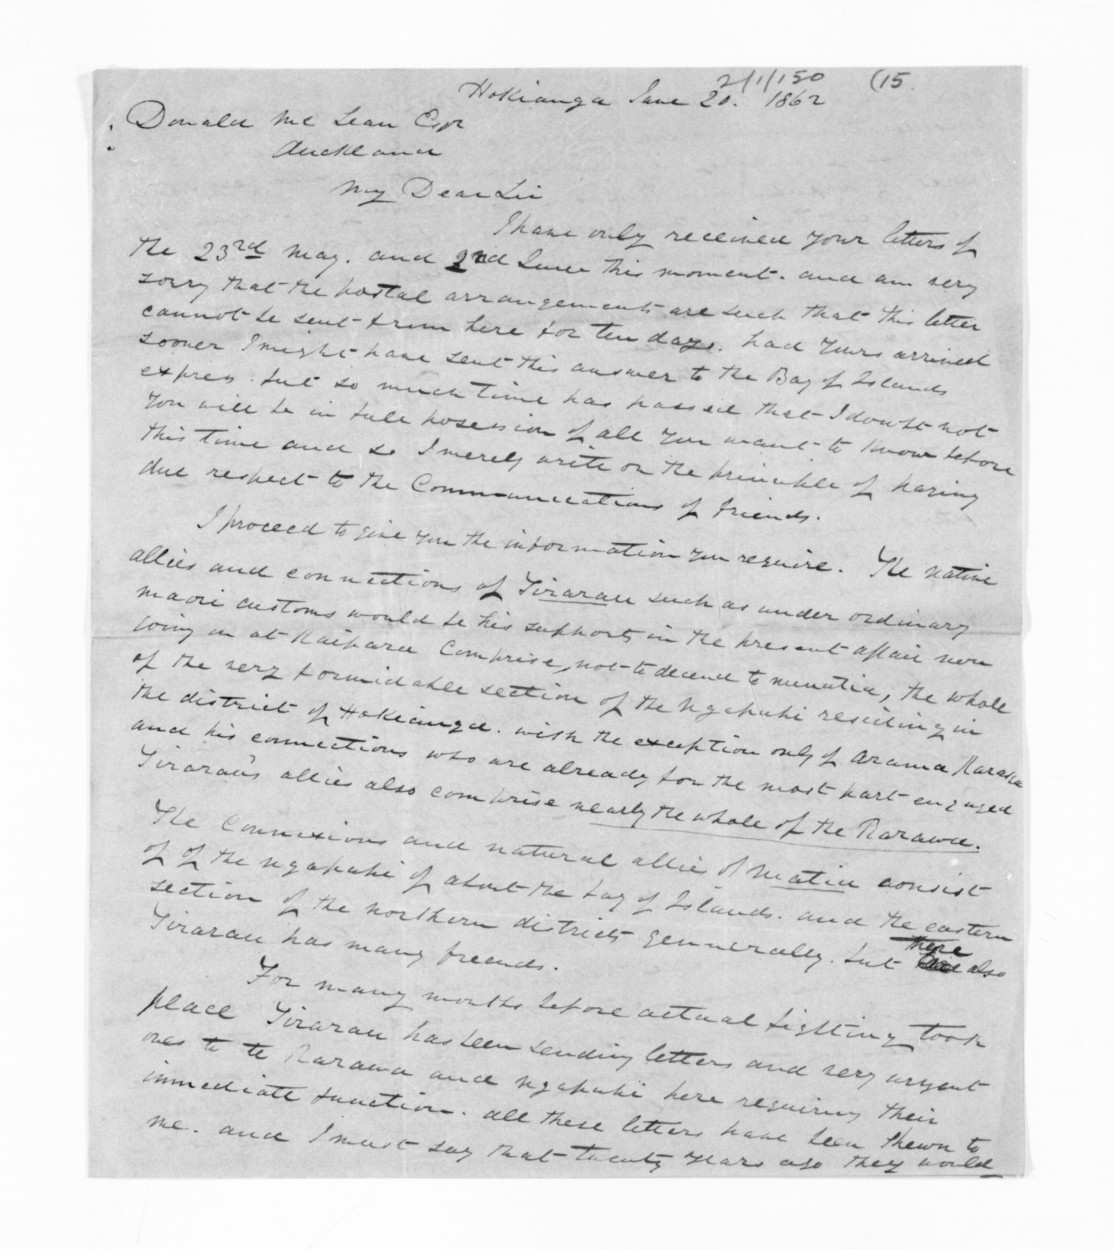 2/1/150 (15.
Hokianga June 20. 1862
Donald Mc Lean Esqr
Auckland
My Dear Sir
I have only received your letters of
the 23rd May. and 2nd June this moment. and am very
sorry that the postal arrangements are such that this letter
cannot be sent from here for ten days. had yours arrived
sooner I might have sent this answer to the Bay of Islands
express. but so much time has passed that I doubt not
you will be in full possession of all you want to know before
this time and so I merely write on the principle of paying
due respect to the Communications of friends.
I proceed to give you the information you require. The native
allies and connections of Tirarau such as under ordinary
maori customs would be his supports in the present affair now
going on at Kaipara Comprise, not to decend to menutia, the whole
of the very formidable section of the Ngapuhi residing in
the district of Hokianga. with the exception only of Arama Karaka
and his connections who are already for the most part engaged
Tirarau's allies also comprise nearly the whole of the Rarawa.
The Connexions and natural allies of Matiu consist
of of the ngapuhi of about the bay of Islands. and the eastern
section of the northern districts gennerally. but there also
Tirarau has many freends.
For many months before actual fighting took
place Tirarau has been sending letters and very urgent
ones to te Rarawa and ngapuhi here requiring their
immediate function. all these letters have been shewn to
me. and I must say that twenty years ago they would